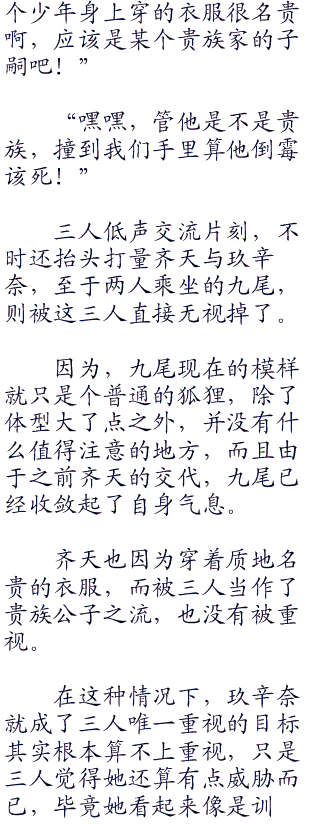 个少年身上穿的衣服很名贵
啊，应该是某个贵族家的子
嗣吧！”
“嘿嘿，管他是不是贵
族，撞到我们手里算他倒霉
该死！”
三人低声交流片刻，不
时还抬头打量齐天与玖辛
奈，至于两人乘坐的九尾，
则被这三人直接无视掉了。
因为，九尾现在的模样
就只是个普通的狐狸，除了
体型大了点之外，并没有什
么值得注意的地方，而且由
于之前齐天的交代，九尾已
经收敛起了自身气息。
齐天也因为穿着质地名
贵的衣服，而被三人当作了
贵族公子之流，也没有被重
视。
在这种情况下，玖辛奈
就成了三人唯一重视的目标
其实根本算不上重视，只是
三人觉得她还算有点威胁而
已，毕竟她看起来像是训